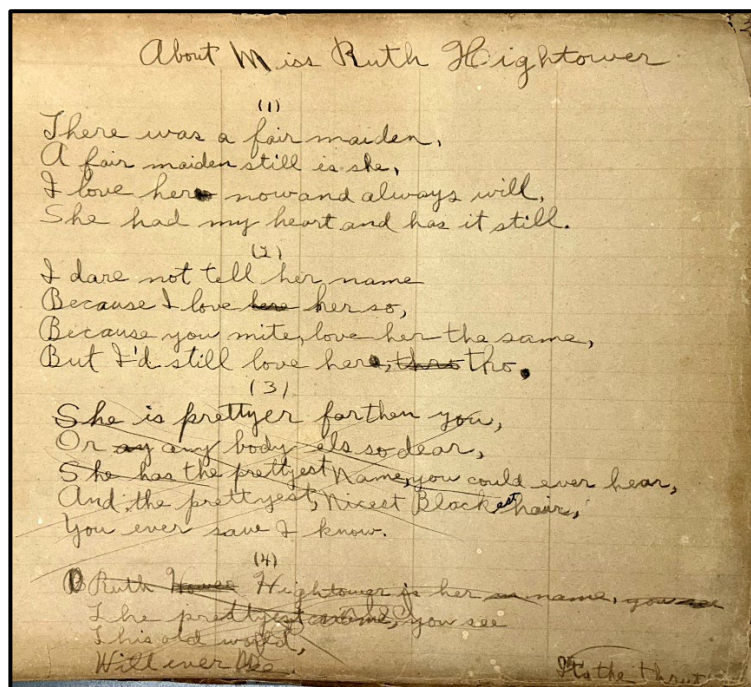 About Miss Ruth Hightower
(1)
There was a fair maiden,
A fair maiden still is she,
I love her now and always will,
She had my heart and has it still.
(2)
I dare not tell her name
Because I love here her so,
Because you mite, love her the same,
But I'd still love here, thro tho.
(3)
She is prettyer far then you,
Or ay any body els so dear,
She has the prettyest Name, you could ever hear,
And, the prettyest, Nicest Blackest hair,
You ever saw I know.
(4)
O Ruth Hightower is her name, you
The prettyest you see
This old world,
Will ever
Its the thrut